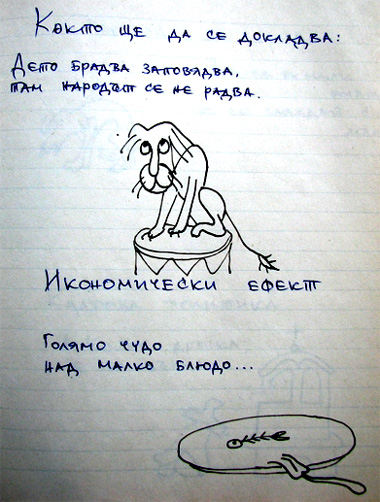 Както ще да се докладва:
Дето брадва заповядва,
там народът се не радва.
Икономически ефект
Голямо чудо
над малко блюдо...